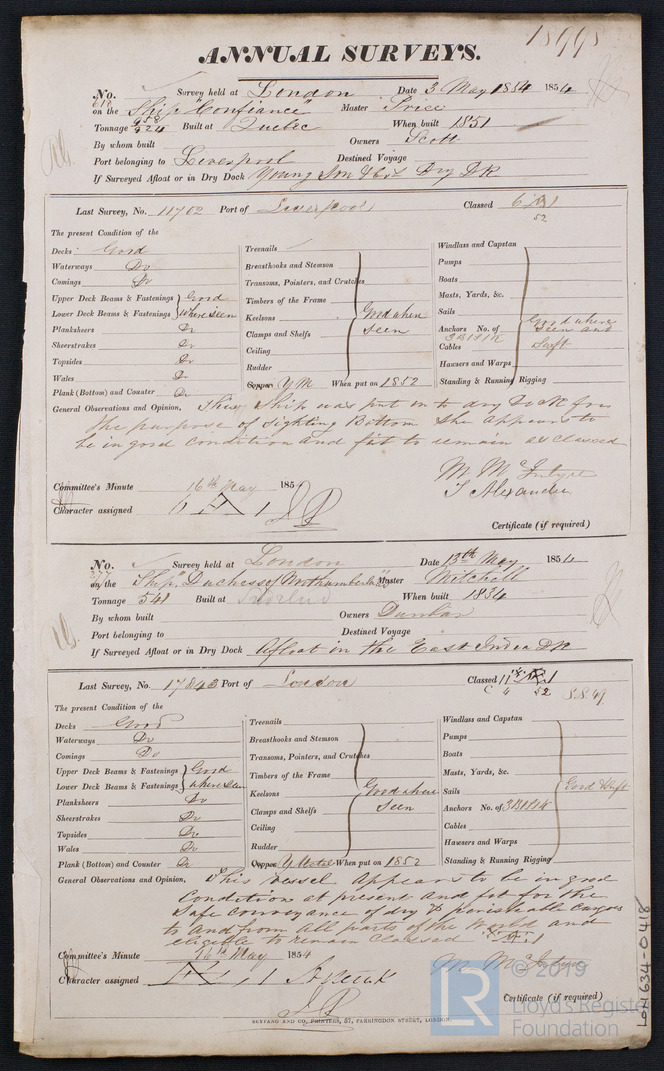 18998
ANNUAL SURVEYS.
No. 618 Survey held at London Date 3 May 1854 1854
on the Ship "Confiance" Master Price
Tonnage 658 524 Built at Quebec When built 1851
By whom built Owners Scott
Port belonging to Liverpool Destined Voyage
If Surveyed Afloat or in Dry Dock Young Son & Co's Dry Dk
Last Survey, No. 11702 Port of Liverpool Classed 6 A 1
52
The present Condition of the
Decks Good
Waterways Do
Comings Do
Upper Deck Beams & Fastenings Good
Lower Deck Beams & Fastenings where seen
Planksheers Do
Sheerstrakes Do
Topsides Do
Wales Do
Plank (Bottom) and Counter Do
Treenails
Breasthooks and Stemson
Transoms, Pointers, and Crutches
Timbers of the Frame
Keelsons Good where
Clamps and Shelfs seen
Ceiling
Rudder
Copper Y M When put on 1852
Windlass and Capstan
Pumps
Boats
Masts, Yards, &c.
Sails Good where
Anchors No. of 3B1S1K seen and
Cables Swft
Hawsers and Warps
Standing & Running Rigging
General Observations and Opinion, This Ship was put on to dry Dock for
the purpose of sighting Bottom She appears to
be in good condition and fit to remain as classed
M McIntyre
T Alexander
Committee's Minute 16th May 1854
Character assigned 6 A 1
Certificate (if required)
No. 277 Survey held at London Date 13th May 1854
on the Ship "Duchess of Northumberland" Master Mitchell
Tonnage 541 Built at When built 1834
By whom built Owners Dunbar
Port belonging to Destined Voyage
If Surveyed Afloat or in Dry Dock Afloat in the East India Dk
Last Survey, No. 17843 Port of London Classed 1
52 SS 49
The present Condition of the
Decks Good
Waterways Do
Comings Do
Upper Deck Beams & Fastenings Good
Lower Deck Beams & Fastenings where seen
Planksheers Do
Sheerstrakes Do
Topsides Do
Wales Do
Plank (Bottom) and Counter Do
Treenails
Breasthooks and Stemson
Transoms, Pointers, and Crutches
Timbers of the Frame
Keelsons Good where
Clamps and Shelfs seen
Ceiling
Rudder
Copper Y Metal When put on 1852
Windlass and Capstan
Pumps
Boats
Masts, Yards, &c.
Sails Good & Swft
Anchors No. of 3B1S1K
Cables
Hawsers and Warps
Standing & Running Rigging
General Observations and Opinion, This vessel appears to be in good
condition at present and fit for the
safe conveyance of dry & perishable cargoes
to and from all parts of the World and
eligible to remain Classed
M McIntyre
Committee's Minute 16th May 1854
Character assigned
Certificate (if required)
SEYFANG AND CO., PRINTERS, 57, FARRINGDON STREET, LONDON.
LON634-0418
LR
© 2019
Lloyd's Register
Foundation